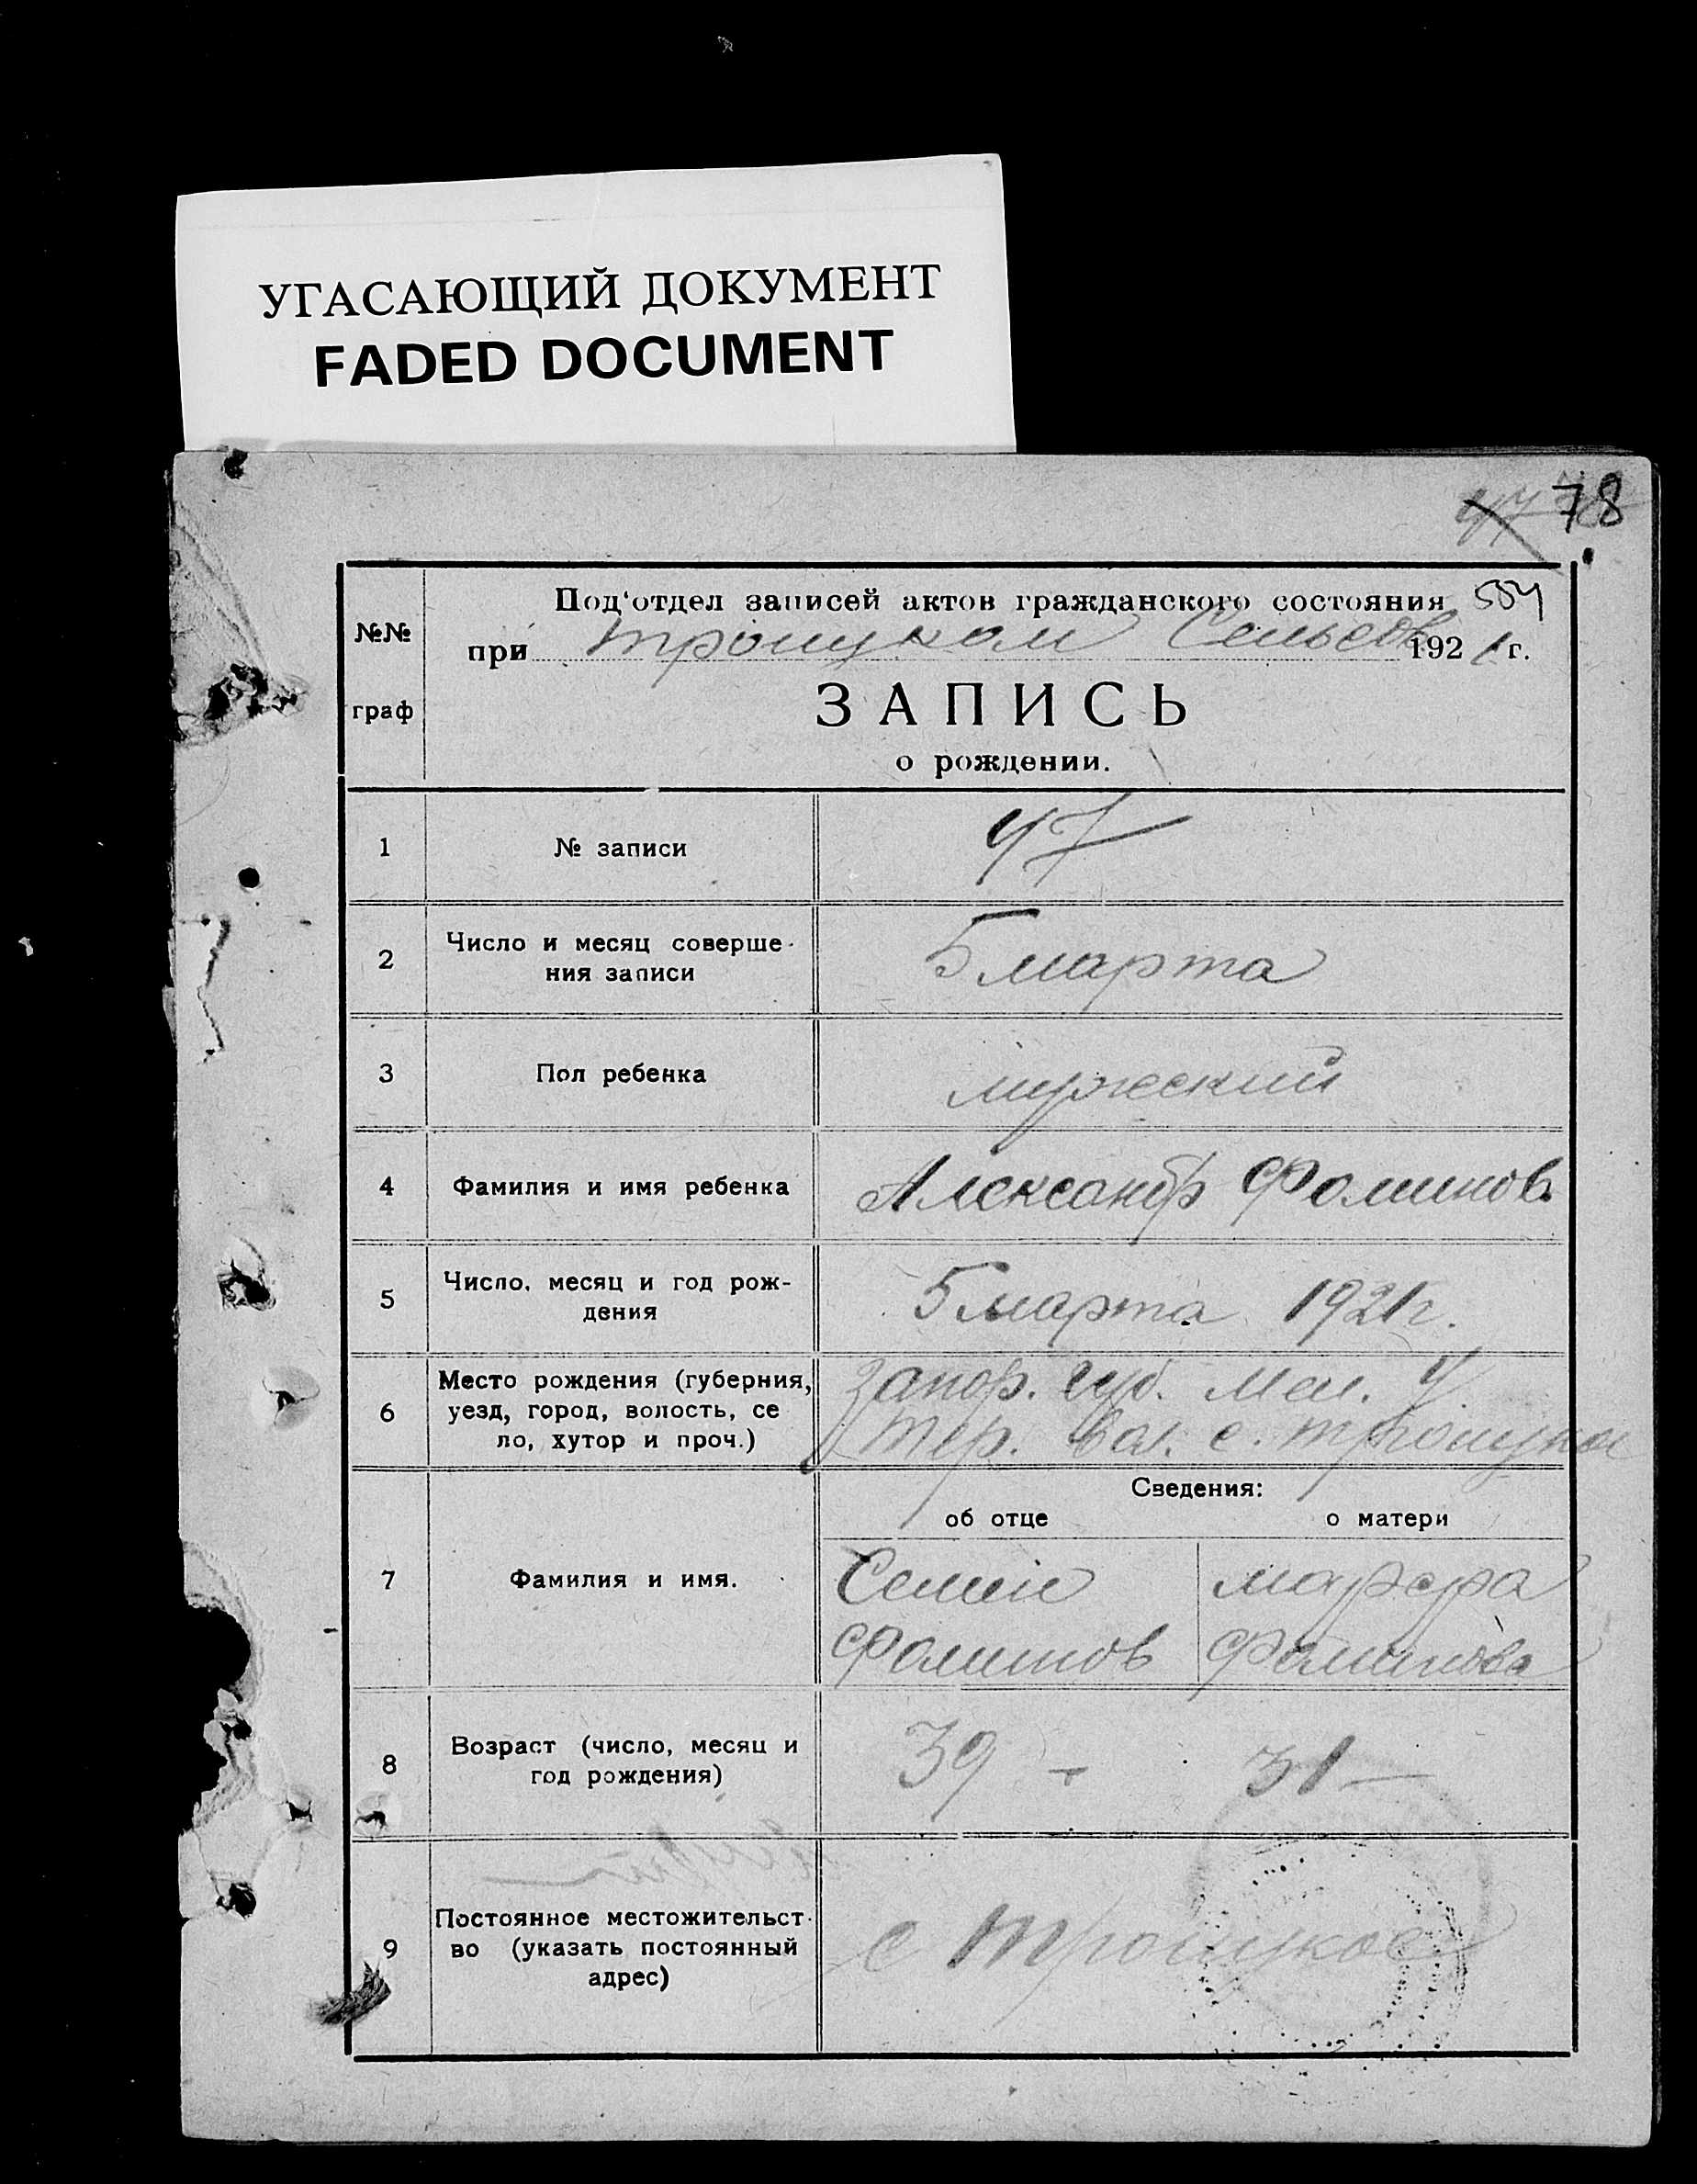 УГАСАЮЩИЙ ДОКУМЕНТ
FADED DOCUMENT
47 78
№№
граф
Под‘отдел записей актов гражданского состояния 554
при троицком Сельсов 1921 г.
ЗАПИСЬ
о рождении.
1 № записи 47
2 Число и месяц соверше-
ния записи 5 марта
3 Пол ребенка мужеский
4 Фамилия и имя ребенка Александр Фоминов
5 Число, месяц и год рож-
дения 5 марта 1921 г.
6 Место рождения (губерния, Запор. губ. Мел. У
уезд, город, волость, се тер. вол. с. троицкое
ло, хутор и проч.)
Сведения:
об отце о матери
7 Фамилия и имя. Семен марфа
Фоминов Фоминова
8 Возраст (число, месяц и
год рождения) 39 - 31 -
9 Постоянное местожительст-
во (указать постоянный с Троицкое
адрес)